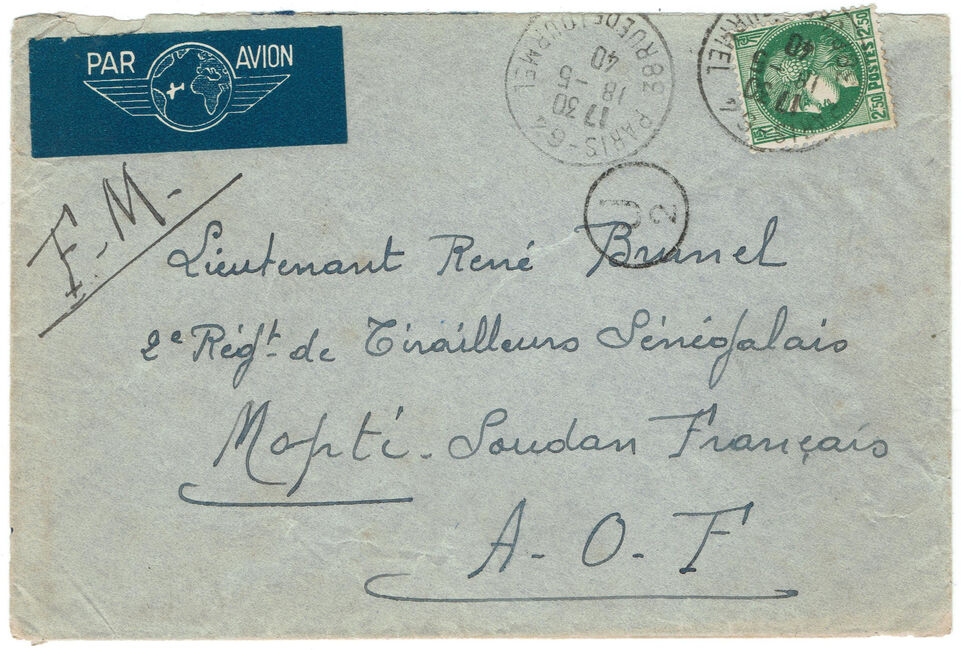 PAR AVION
PARIS-64
82 RUE DE LOURMEL
17 30
18 -5
40
2F50 POSTES 2F50
U
2
F.M.
Lieutenant René Brunel
2e Régt. de Tirailleurs Sénégalais
Mopti. Soudan Français
A-O-F